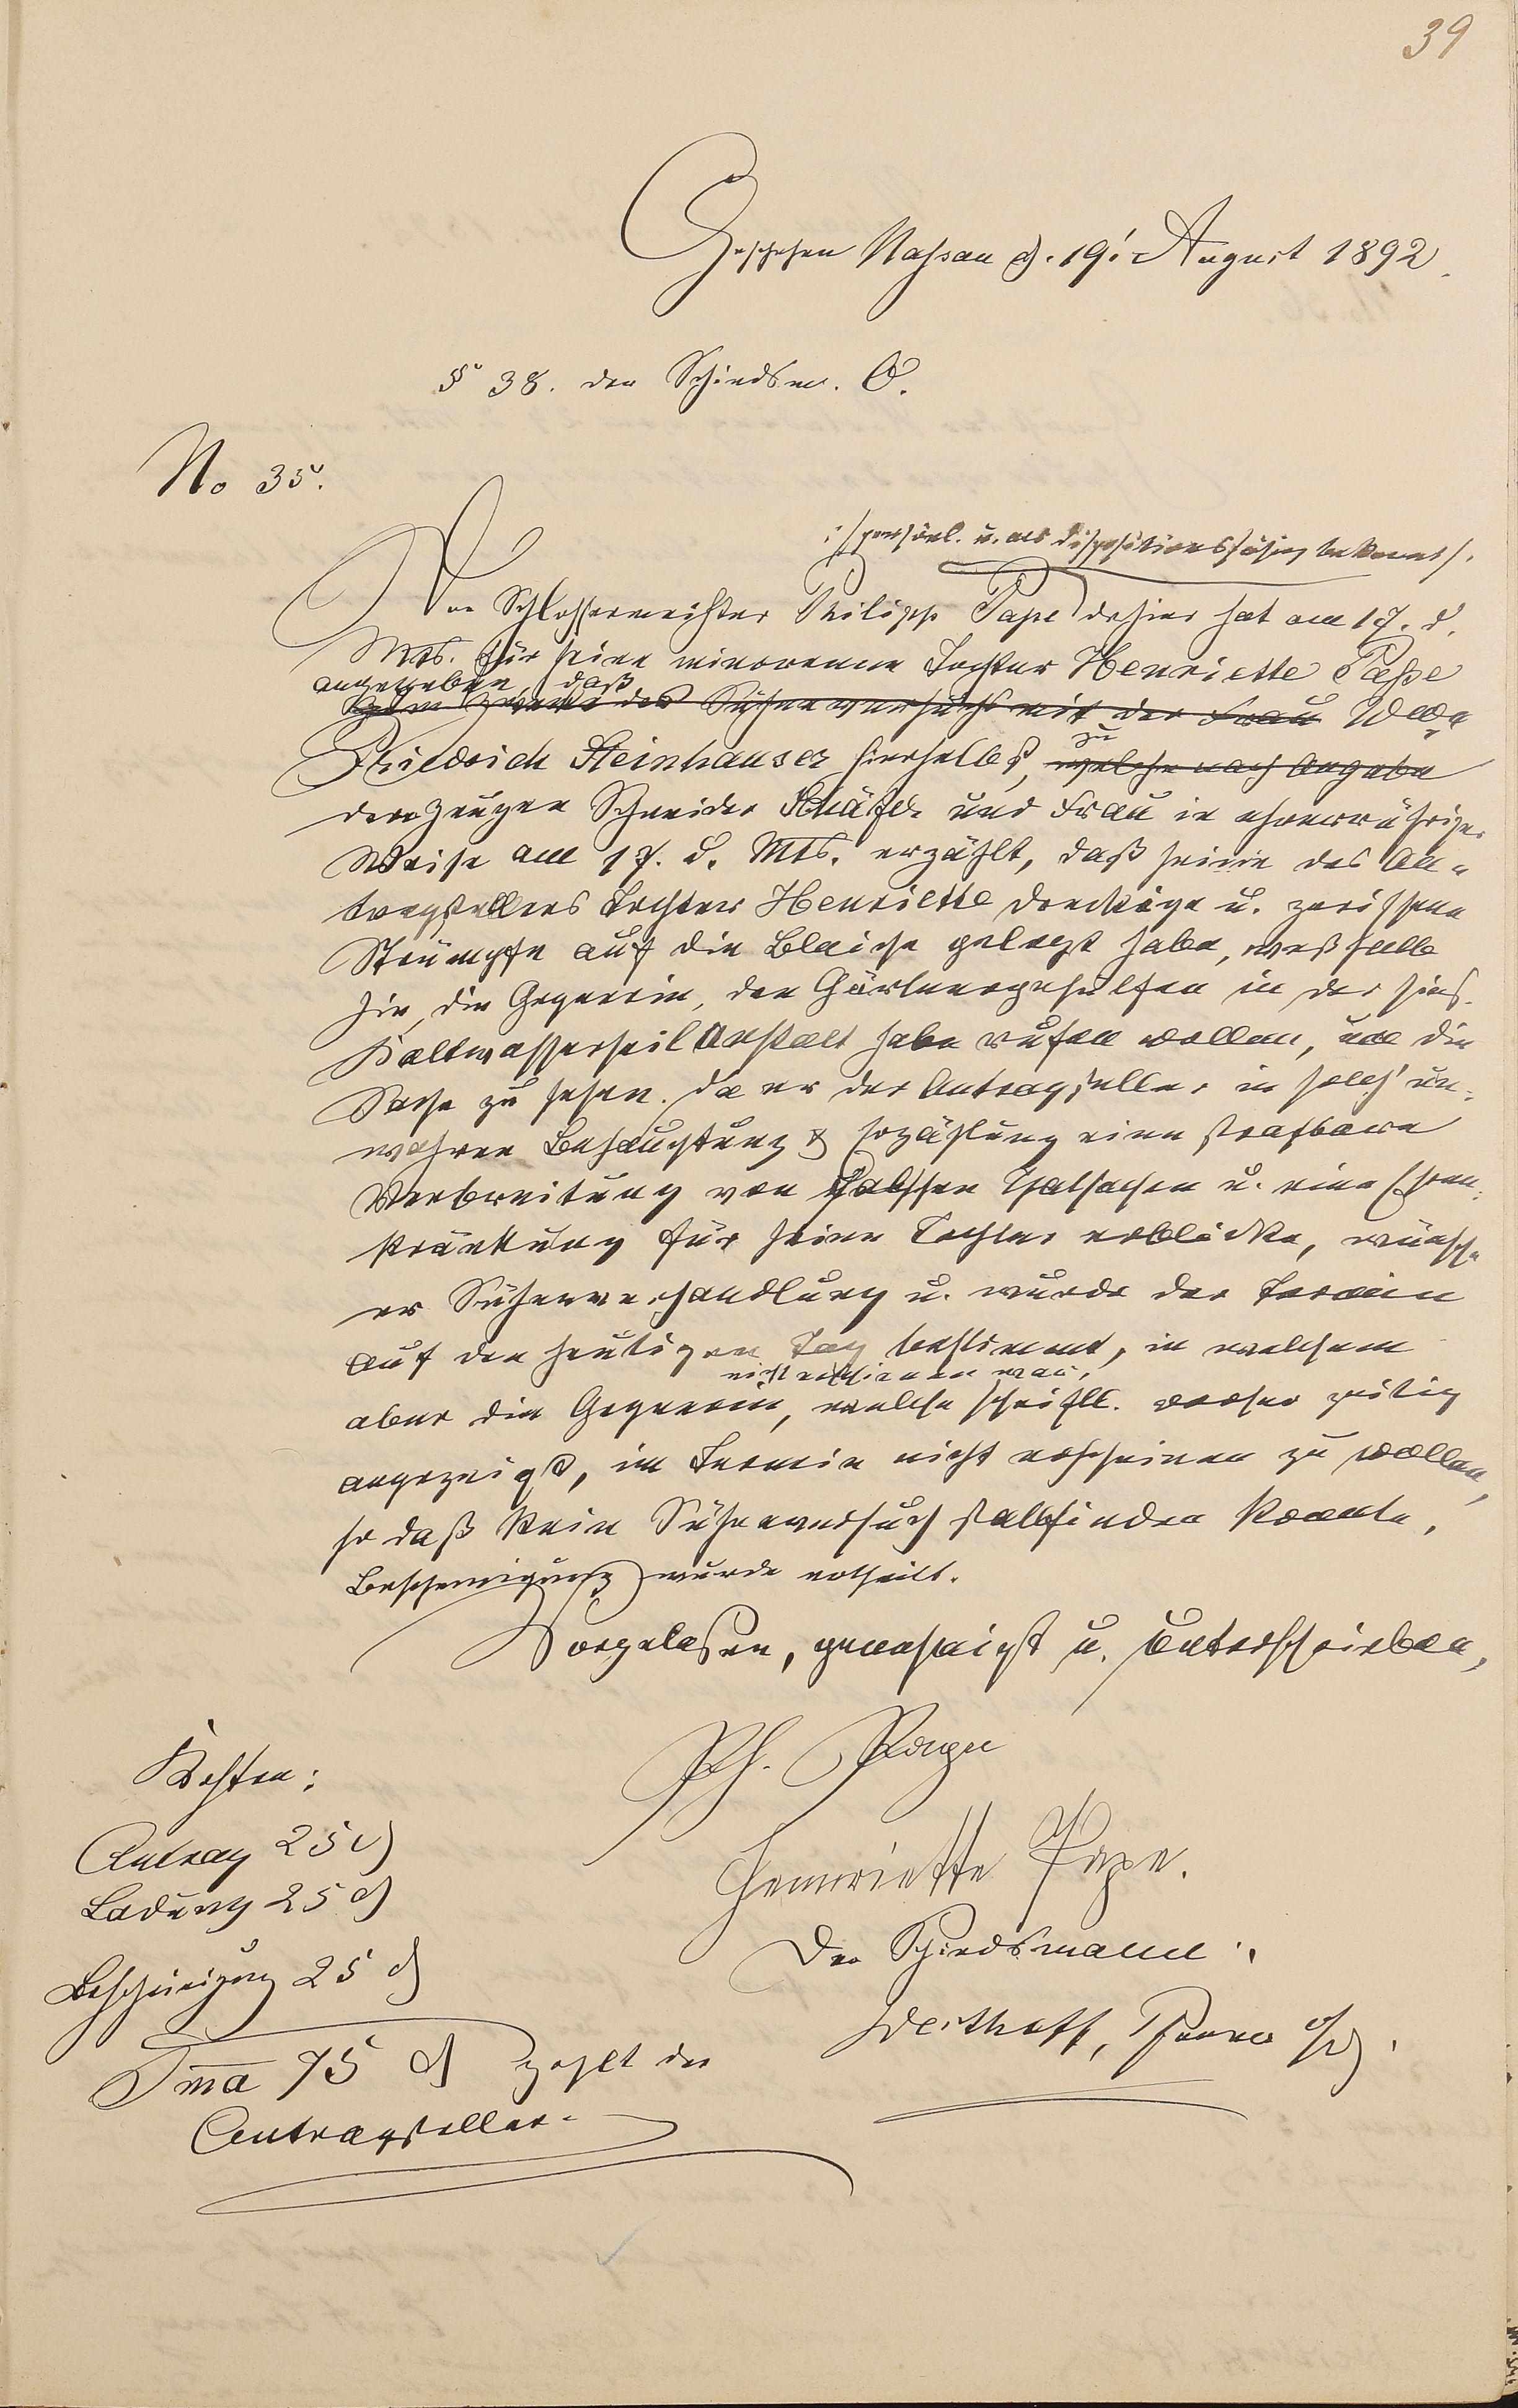 39
Geschehen Nassau d. 19. August 1892.
§ 38. der Schiedsm. O.
No 35.
:/persönl. u. als dispositionsfähig bekannt/.
Der Schlossermeister Philipp Pape dahier hat am 17. d.
Mts. für seine minorenne Tochter Henriette Pape
angegeben, daß
zum Zwecke des Sühneversuchs mit der Frau Wwe
Friedrich Steinhauser hierselbst, welche nach Angabe
zu
den Zeugen Schneider Schäfer und Frau in ehrenrühriger
Weise am 17. d. Mts. erzählt, daß seine des An-
tragstellers Tochter Henriette dreckige u. zerissene
Strümpfe auf die Blaiche gelegt habe, weßhalb
sie, die Gegnerin, den Gärtnergehülfen in der hies.
Kaltwasserheilanstalt habe rufen wollen, um die
Sache zu sehen. Da er der Antragsteller in solch' un-
wahren Behauptung & Erzählung eine strafbare
Verbreitung von falschen Thatsachen u. eine Ehren-
kränkung für seine Tochter erblicke, wünsche
er Sühneverhandlung u. wurde der Termin
auf den heutigen Tag bestimmt, in welchem
nicht erschienen war,
aber die Gegnerin, welche schriftl. vorher zeitig
angezeigt, im Termin nicht erscheinen zu wollen,
so daß kein Sühneversuch stattfinden konnte,
Bescheinigung wurde ertheilt.
Vorgelesen, genehmigt u. unterschrieben,
Ph. Pape
Henriette Pape.
Der Schiedsmann:
Kosten:
Antrag 25 d
Ladung 25 d
Bescheinigung 25 d
Sma 75 d zahlt der
Antragsteller.